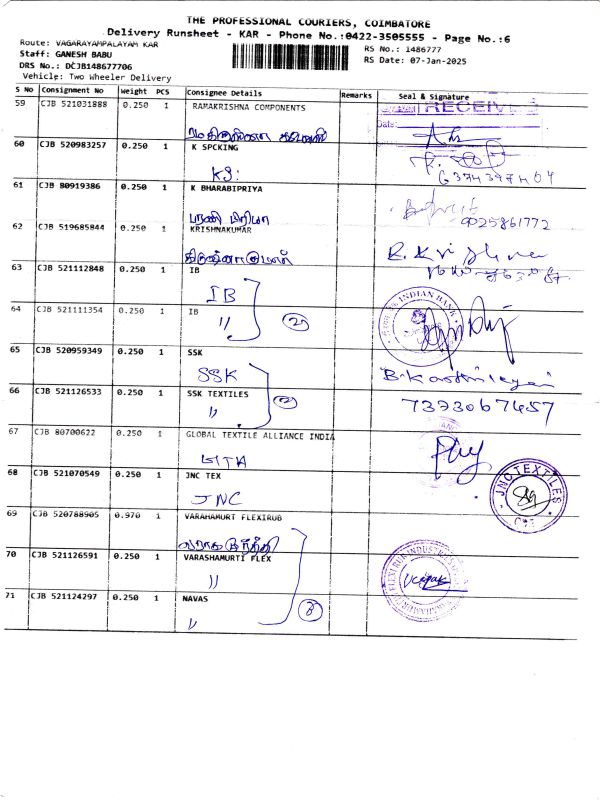 THE PROFESSIONAL COURIERS, COIMBATORE
Delivery Runsheet - KAR - Phone No.:0422-3505555 - Page No.:6
Route: VAGARAYAMPALAYAM KAR
RS No.: 1486777
Staff: GANESH BABU
RS Date: 07-Jan-2025
DRS No.: DCJB148677706
Vehicle: Two Wheeler Delivery
S No Consignment No Weight PCS Consignee Details Remarks Seal & Signature
59 CJB 521031888 0.250 1 RAMAKRISHNA COMPONENTS
RECEIVED
Date:
60 CJB 520983257 0.250 1 K SPCKING
KS:
61 CJB 80919386 0.250 1 K BHARABIPRIYA
பரணி பிரியா 9025861772
62 CJB 519685844 0.250 1 KRISHNAKUMAR
R. Krishna
63 CJB 521112848 0.250 1 IB
IB
64 CJB 521111354 0.250 1 IB
" 2
INDIAN BANK
65 CJB 520959349 0.250 1 SSK
SSK
66 CJB 521126533 0.250 1 SSK TEXTILES
" 2
7373067457
67 CJB 80700622 0.250 1 GLOBAL TEXTILE ALLIANCE INDIA
GTA
68 CJB 521070549 0.250 1 JNC TEX
JNC
JNC TEXTILES
69 CJB 520788905 0.970 1 VARAHAMURT FLEXIRUB
70 CJB 521126591 0.250 1 VARASHAMURTI FLEX
"
71 CJB 521124297 0.250 1 NAVAS
" 3